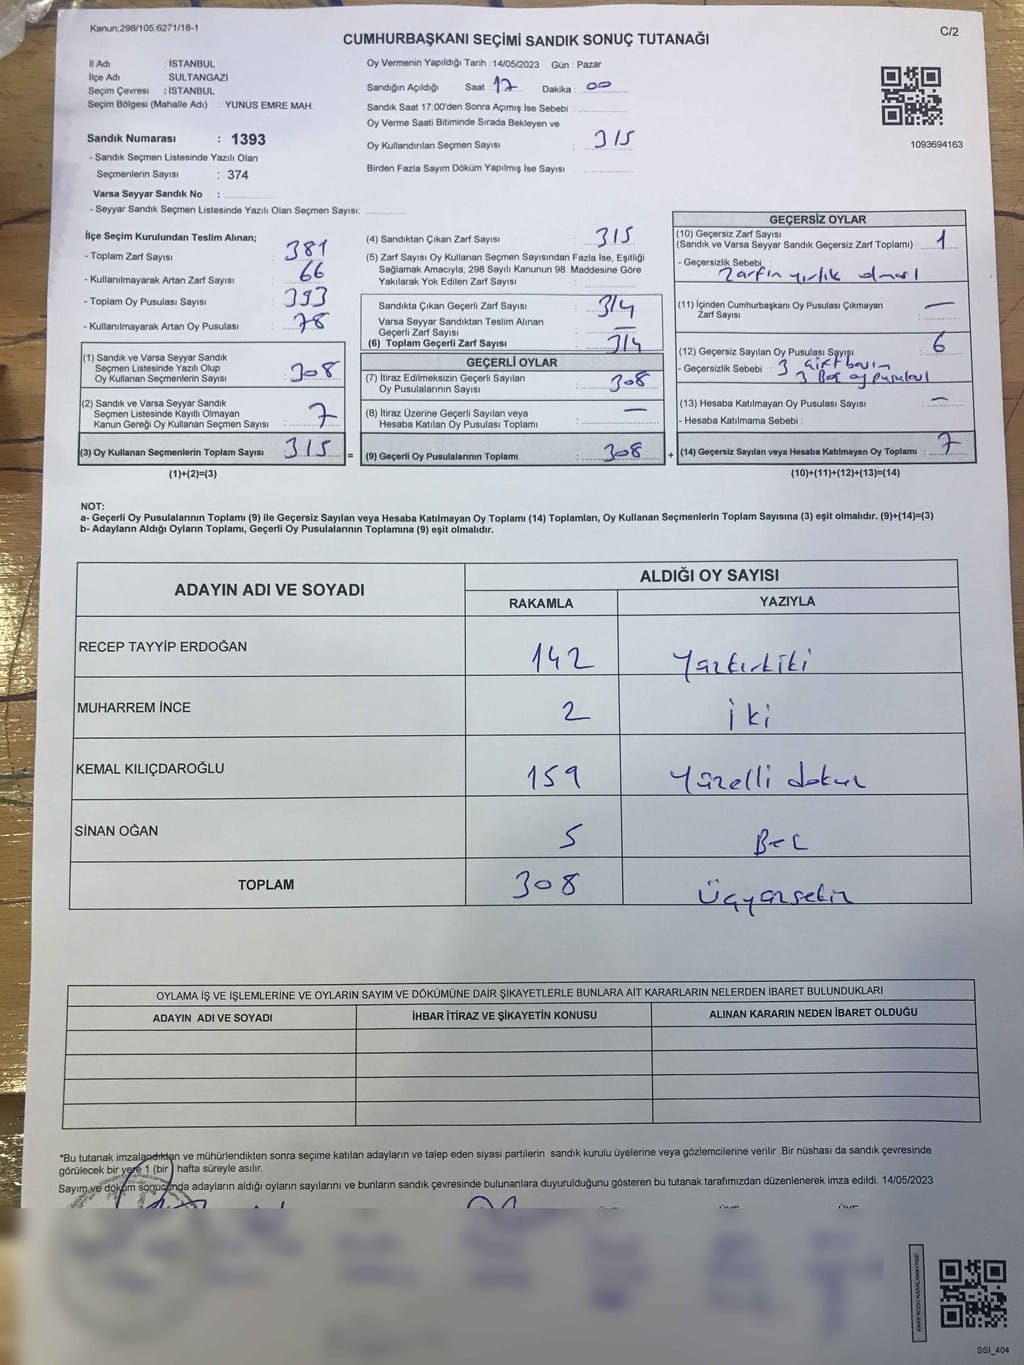 Kanun:298/105 6271/18-1
C/2
CUMHURBAŞKANI SEÇİMİ SANDIK SONUÇ TUTANAĞI
İl Adı : İSTANBUL
İlçe Adı : SULTANGAZİ
Seçim Çevresi : İSTANBUL
Seçim Bölgesi (Mahalle Adı) : YUNUS EMRE MAH.
Sandık Numarası : 1393
- Sandık Seçmen Listesinde Yazılı Olan
Seçmenlerin Sayısı : 374
Varsa Seyyar Sandık No :
- Seyyar Sandık Seçmen Listesinde Yazılı Olan Seçmen Sayısı:
Oy Vermenin Yapıldığı Tarih : 14/05/2023 Gün : Pazar
Sandığın Açıldığı Saat : 17 Dakika : 00
Sandık Saat 17:00'den Sonra Açımış İse Sebebi :
Oy Verme Saati Bitiminde Sırada Bekleyen ve
Oy Kullandırılan Seçmen Sayısı : 315
Birden Fazla Sayım Döküm Yapılmış İse Sayısı :
1093694163
İlçe Seçim Kurulundan Teslim Alınan;
- Toplam Zarf Sayısı : 381
- Kullanılmayarak Artan Zarf Sayısı : 66
- Toplam Oy Pusulası Sayısı : 393
- Kullanılmayarak Artan Oy Pusulası : 78
(1) Sandık ve Varsa Seyyar Sandık
Seçmen Listesinde Yazılı Olup
Oy Kullanan Seçmenlerin Sayısı : 308
(2) Sandık ve Varsa Seyyar Sandık
Seçmen Listesinde Kayıtlı Olmayan
Kanun Gereği Oy Kullanan Seçmen Sayısı : 7
(3) Oy Kullanan Seçmenlerin Toplam Sayısı : 315
(1)+(2)=(3)
(4) Sandıktan Çıkan Zarf Sayısı : 315
(5) Zarf Sayısı Oy Kullanan Seçmen Sayısından Fazla İse, Eşitliği
Sağlamak Amacıyla, 298 Sayılı Kanunun 98. Maddesine Göre
Yakılarak Yok Edilen Zarf Sayısı :
Sandıkta Çıkan Geçerli Zarf Sayısı : 314
Varsa Seyyar Sandıktan Teslim Alınan
Geçerli Zarf Sayısı : —
(6) Toplam Geçerli Zarf Sayısı : 314
GEÇERLİ OYLAR
(7) İtiraz Edilmeksizin Geçerli Sayılan
Oy Pusulalarının Sayısı : 308
(8) İtiraz Üzerine Geçerli Sayılan veya
Hesaba Katılan Oy Pusulası Toplamı : —
= (9) Geçerli Oy Pusulalarının Toplamı : 308
GEÇERSİZ OYLAR
(10) Geçersiz Zarf Sayısı
(Sandık ve Varsa Seyyar Sandık Geçersiz Zarf Toplamı) : 1
- Geçersizlik Sebebi :
Zarfın yırtık olması
(11) İçinden Cumhurbaşkanı Oy Pusulası Çıkmayan
Zarf Sayısı : —
(12) Geçersiz Sayılan Oy Pusulası Sayısı : 6
- Geçersizlik Sebebi : 3 çift basım
3 Boş oy pusulası
(13) Hesaba Katılmayan Oy Pusulası Sayısı : —
- Hesaba Katılmama Sebebi :
+ (14) Geçersiz Sayılan veya Hesaba Katılmayan Oy Toplamı : 7
(10)+(11)+(12)+(13)=(14)
NOT:
a- Geçerli Oy Pusulalarının Toplamı (9) ile Geçersiz Sayılan veya Hesaba Katılmayan Oy Toplamı (14) Toplamları, Oy Kullanan Seçmenlerin Toplam Sayısına (3) eşit olmalıdır. (9)+(14)=(3)
b- Adayların Aldığı Oyların Toplamı, Geçerli Oy Pusulalarının Toplamına (9) eşit olmalıdır.
ADAYIN ADI VE SOYADI
ALDIĞI OY SAYISI
RAKAMLA YAZIYLA
RECEP TAYYİP ERDOĞAN 142 Yüzkırkiki
MUHARREM İNCE 2 iki
KEMAL KILIÇDAROĞLU 159 Yüzelli dokuz
SİNAN OĞAN 5 Beş
TOPLAM 308 Üçyüzsekiz
OYLAMA İŞ VE İŞLEMLERİNE VE OYLARIN SAYIM VE DÖKÜMÜNE DAİR ŞİKAYETLERLE BUNLARA AİT KARARLARIN NELERDEN İBARET BULUNDUKLARI
ADAYIN ADI VE SOYADI İHBAR İTİRAZ VE ŞİKAYETİN KONUSU ALINAN KARARIN NEDEN İBARET OLDUĞU
*Bu tutanak imzalandıktan ve mühürlendikten sonra seçime katılan adayların ve talep eden siyasi partilerin sandık kurulu üyelerine veya gözlemcilerine verilir .Bir nüshası da sandık çevresinde
görülecek bir yere 1 (bir) hafta süreyle asılır.
Sayım ve döküm sonucunda adayların aldığı oyların sayılarını ve bunların sandık çevresinde bulunanlara duyurulduğunu gösteren bu tutanak tarafımızdan düzenlenerek imza edildi. 14/05/2023
SSI_404